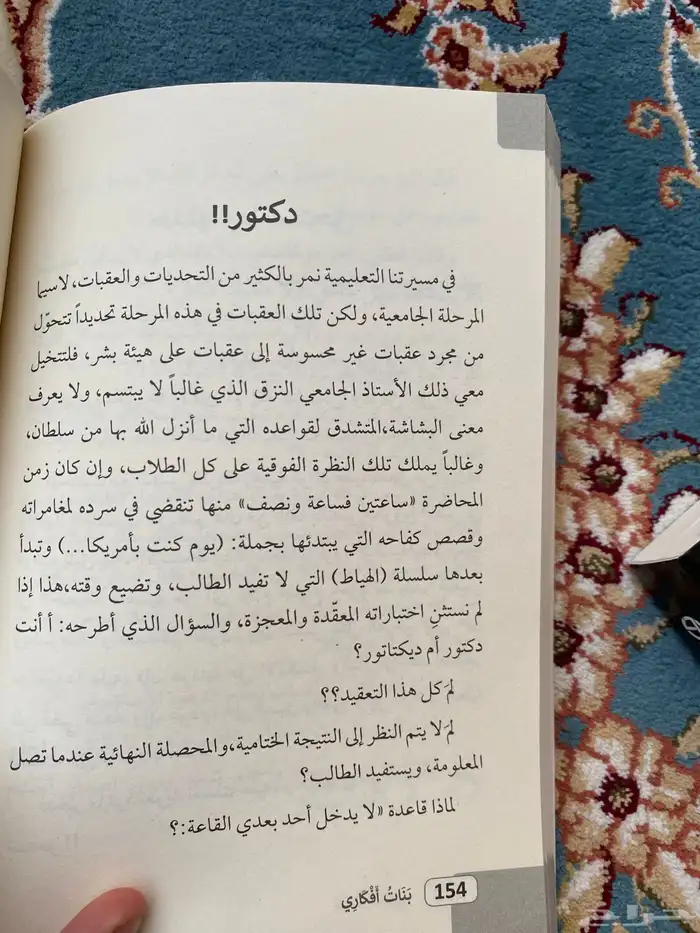 دكتور!!
في مسيرتنا التعليمية نمر بالكثير من التحديات والعقبات، لاسيما
المرحلة الجامعية، ولكن تلك العقبات في هذه المرحلة تحديداً تتحوّل
من مجرد عقبات غير محسوسة إلى عقبات على هيئة بشر، فلتتخيل
معي ذلك الأستاذ الجامعي النزق الذي غالباً لا يبتسم، ولا يعرف
معنى البشاشة،المتشدق لقواعده التي ما أنزل الله بها من سلطان،
وغالباً يملك تلك النظرة الفوقية على كل الطلاب، وإن كان زمن
المحاضرة «ساعتين فساعة ونصف» منها تنقضي في سرده لمغامراته
وقصص كفاحه التي يبتدئها بجملة: (يوم كنت بأمريكا...) وتبدأ
بعدها سلسلة (الهياط) التي لا تفيد الطالب، وتضيع وقته،هذا إذا
لم نستثنِ اختباراته المعقّدة والمعجزة، والسؤال الذي أطرحه: أ أنت
دكتور أم ديكتاتور؟
لمَ كل هذا التعقيد؟؟
لمَ لا يتم النظر إلى النتيجة الختامية،والمحصلة النهائية عندما تصل
المعلومة، ويستفيد الطالب؟
لماذا قاعدة «لا يدخل أحد بعدي القاعة:؟
154 بَنَاتُ أَفْكَارِي
حراج